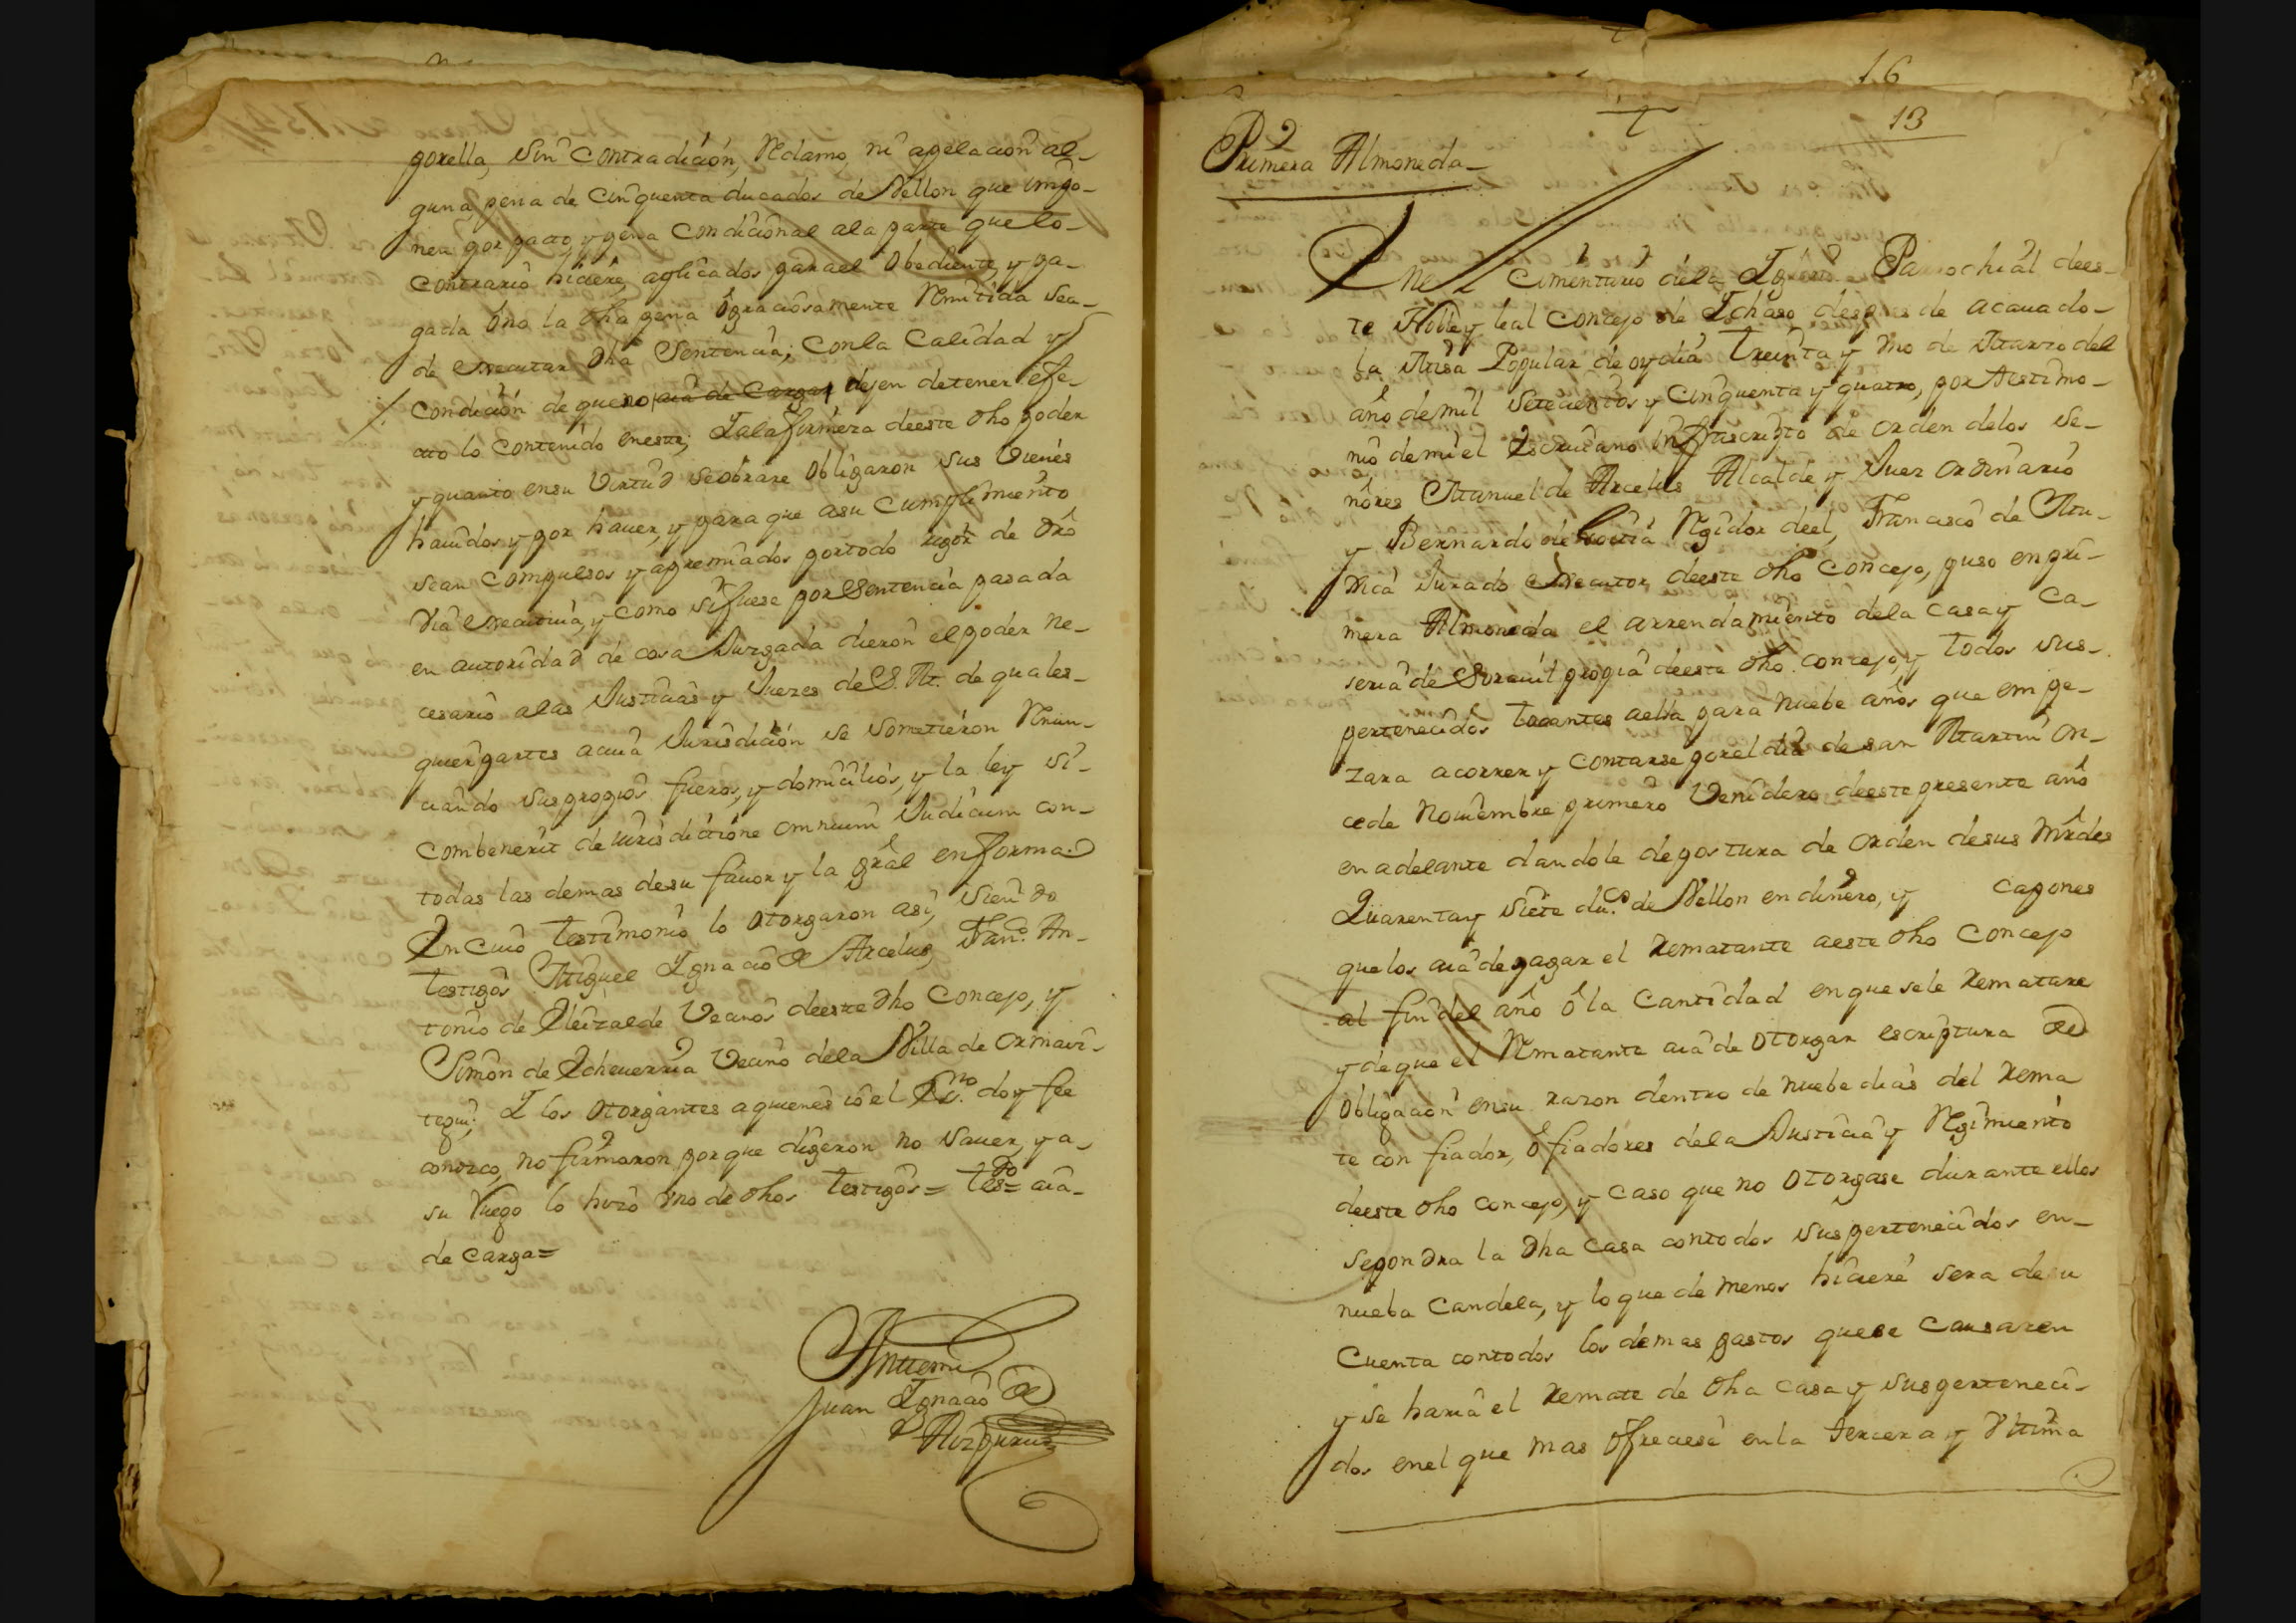 porella, sin contradición, Reclamo, ni apelacion al-
guna, pena de cinquenta ducados de Vellon que impo-
nen por pacto, y pena condicional ala parte que lo-
contrario hiciere, aplicados para el obediente, y pa-
gada ô no la dha pena ô graciosamente Remitida sea-
de executar dha Sentencia; con la calidad y
condición de que no aia de cargar dejen de tener efe-
cto lo contenido en este; I ala firmeza de este dho poder
y quanto en su virtud se obrare obligaron sus vienes
hauidos y por hauer, y para que a su cumplimiento
sean compulsos y apremiados por todo rigor de dro
via executiua, y como si fuese por Sentencia pasada
en autoridad de cosa Juzgada dieron el poder ne-
cesario alas Justicias y Juezes de S. M. de quales-
quier partes a cuia Jurisdición se sometieron Renun-
ciando sus propios fueros, y domicilios, y la ley si-
combenerit de iurisdictione omnium Judicum con-
todas las demas de su fauor y la gral en forma
En cuio testimonio lo otorgaron asi, siendo
testigos Miguel Ignacio de Arcelus, Fran.co An-
tonio de Eleizalde Vecinos de este dho Concejo, y
Simon de Echeuerria Vecino dela Villa de Ormaiz-
tegui; I los otorgantes a quienes io el Ess.no doy fee
conozco, no firmaron por que dijeron no sauer, y a-
su Ruego lo hizo vno de dhos testigos = tes.do = aia-
de carga=
Antemi
Juan Ignacio de
16
13
Primera Almoneda-
En el Cimenterio dela Iglesia Parrochial de es-
te Noble y leal Concejo de Ichaso despues de acauado-
la Misa Popular de oy dia treinta y vno de Marzo del
año de mil setecientos y cinquenta y quatro, por testimo-
nio de mi el Escriuano infrascripto de orden delos se-
ñores Manuel de Arcelus Alcalde y Juez ordinario
y Bernardo de Regidor de el, Francisco de
Jurado executor de este dho Concejo, puso en pri-
mera Almoneda el arrendamiento dela casa y ca-
seria de propia de este dho concejo, y todos sus-
pertenecidos tocantes a ella para nuebe años que empe-
zara a correr y contarse por el dia de san Martin on-
ce de Nouiembre primero Venidero de este presente año
en adelante dandole de postura de orden de sus Mrdes
Quarenta y siete du.s de Vellon en dinero, y capones
que los aia de pagar el Rematante a este dho Concejo
al fin del año ô la cantidad en que se le Rematare
y de que el Rematante aia de otorgar escriptura de
obligacion en su razon dentro de nuebe dias del Rema
te con fiador, ô fiadores dela Justicia y Regimiento
de este dho concejo, y caso que no otorgase durante ellos
se pondra la dha casa con todos sus pertenecidos en-
nueba candela, y lo que de menos hiciere sera de su
cuenta con todos los demas gastos que se causaren
y se haria el Remate de dha casa y sus perteneci-
dos en el que mas ofreciese en la tercera y vltima